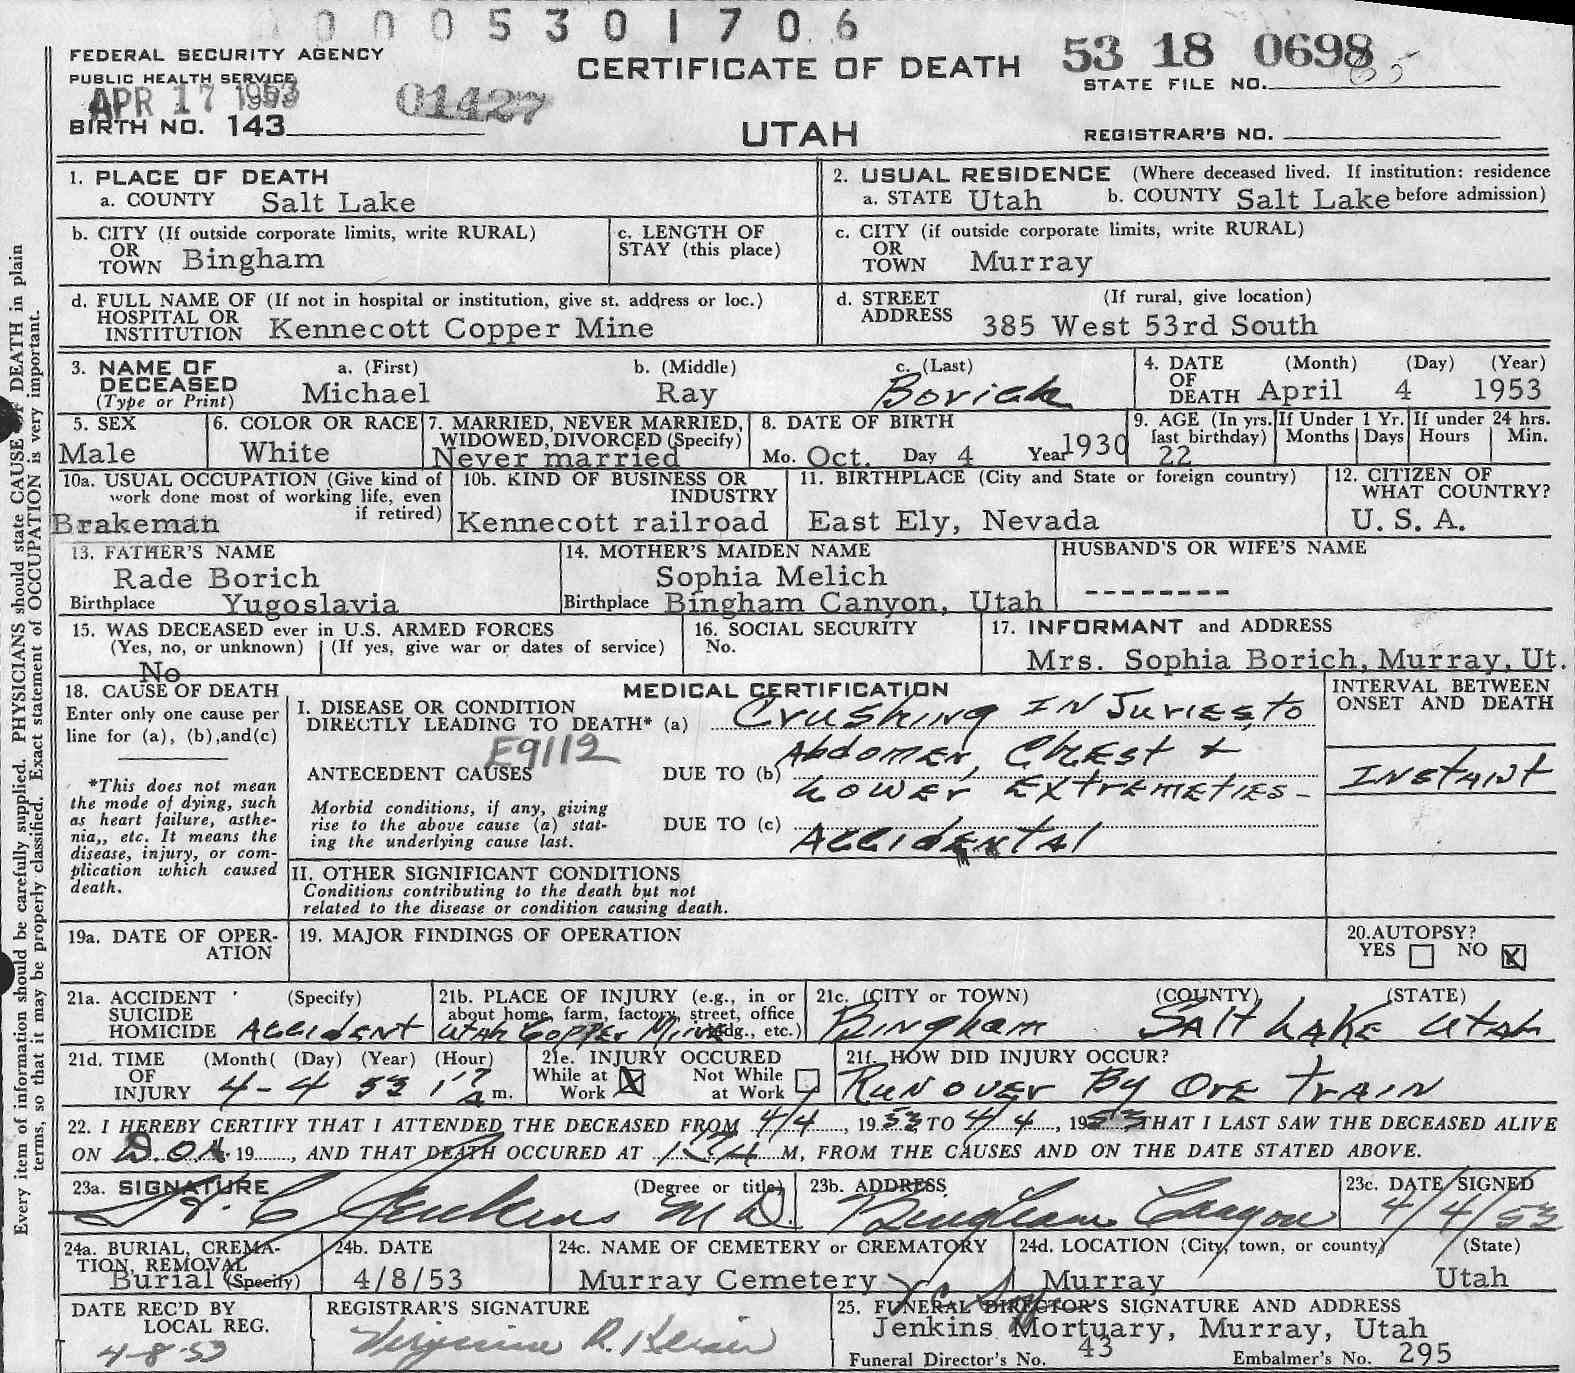 0 0 0 5 3 0 1 7 0 6
FEDERAL SECURITY AGENCY
PUBLIC HEALTH SERVICE
APR 17 1953
01427
CERTIFICATE OF DEATH
UTAH
53 18 0698
STATE FILE NO.
BIRTH NO. 143
REGISTRAR'S NO.
1. PLACE OF DEATH
a. COUNTY Salt Lake
2. USUAL RESIDENCE (Where deceased lived. If institution: residence
a. STATE Utah b. COUNTY Salt Lake before admission)
b. CITY (If outside corporate limits, write RURAL)
OR
TOWN Bingham
c. LENGTH OF
STAY (this place)
c. CITY (if outside corporate limits, write RURAL)
OR
TOWN Murray
d. FULL NAME OF (If not in hospital or institution, give st. address or loc.)
HOSPITAL OR
INSTITUTION Kennecott Copper Mine
d. STREET (If rural, give location)
ADDRESS 385 West 53rd South
3. NAME OF DECEASED (Type or Print)
a. (First) Michael
b. (Middle) Ray
c. (Last) Borich
4. DATE OF DEATH (Month) (Day) (Year)
April 4 1953
5. SEX
Male
6. COLOR OR RACE
White
7. MARRIED, NEVER MARRIED,
WIDOWED, DIVORCED (Specify)
Never married
8. DATE OF BIRTH
Mo. Oct. Day 4 Year 1930
9. AGE (In yrs. last birthday)
22
If Under 1 Yr.
Months Days
If under 24 hrs.
Hours Min.
10a. USUAL OCCUPATION (Give kind of
work done most of working life, even
if retired)
Brakeman
10b. KIND OF BUSINESS OR
INDUSTRY
Kennecott railroad
11. BIRTHPLACE (City and State or foreign country)
East Ely, Nevada
12. CITIZEN OF
WHAT COUNTRY?
U. S. A.
13. FATHER'S NAME
Rade Borich
Birthplace Yugoslavia
14. MOTHER'S MAIDEN NAME
Sophia Melich
Birthplace Bingham Canyon, Utah
HUSBAND'S OR WIFE'S NAME
--------
15. WAS DECEASED ever in U.S. ARMED FORCES
(Yes, no, or unknown) (If yes, give war or dates of service)
No
16. SOCIAL SECURITY
No.
17. INFORMANT and ADDRESS
Mrs. Sophia Borich, Murray, Ut.
18. CAUSE OF DEATH
Enter only one cause per
line for (a), (b), and (c)
*This does not mean
the mode of dying, such
as heart failure, asthe-
nia,, etc. It means the
disease, injury, or com-
plication which caused
death.
MEDICAL CERTIFICATION
I. DISEASE OR CONDITION
DIRECTLY LEADING TO DEATH* (a) Crushing INJuries, to
E9112
ANTECEDENT CAUSES DUE TO (b) Abdomen, Chest +
Lower Extremeties-
Morbid conditions, if any, giving
rise to the above cause (a) stat-
ing the underlying cause last.
DUE TO (c) Accidental
INTERVAL BETWEEN
ONSET AND DEATH
INStANt
II. OTHER SIGNIFICANT CONDITIONS
Conditions contributing to the death but not
related to the disease or condition causing death.
19a. DATE OF OPER-
ATION
19. MAJOR FINDINGS OF OPERATION
20. AUTOPSY?
YES NO X
21a. ACCIDENT (Specify)
SUICIDE
HOMICIDE Accident
21b. PLACE OF INJURY (e.g., in or
about home, farm, factory, street, office
bldg., etc.)
Utah Copper Mine
21c. (CITY or TOWN) (COUNTY) (STATE)
Bingham Salt Lake Utah
21d. TIME (Month( (Day) (Year) (Hour)
OF
INJURY 4-4 53 m.
21e. INJURY OCCURED
While at Work X Not While at Work
21f. HOW DID INJURY OCCUR?
Run over By Ore train
22. I HEREBY CERTIFY THAT I ATTENDED THE DECEASED FROM 4/4, 1953 TO 4/4, 1953 THAT I LAST SAW THE DECEASED ALIVE
ON D.O.A. 19......, AND THAT DEATH OCCURED AT M, FROM THE CAUSES AND ON THE DATE STATED ABOVE.
23a. SIGNATURE (Degree or title)
Jenkins M.D.
23b. ADDRESS
Bingham Canyon
23c. DATE SIGNED
4/4/53
24a. BURIAL, CREMA-
TION, REMOVAL
(Specify) Burial
24b. DATE
4/8/53
24c. NAME OF CEMETERY or CREMATORY
Murray Cemetery
24d. LOCATION (City, town, or county) (State)
Murray Utah
DATE REC'D BY
LOCAL REG.
4-8-53
REGISTRAR'S SIGNATURE
25. FUNERAL DIRECTOR'S SIGNATURE AND ADDRESS
Jenkins Mortuary, Murray, Utah
Funeral Director's No. 43 Embalmer's No. 295
Every item of information should be carefully supplied. PHYSICIANS should state CAUSE OF DEATH in plain
terms, so that it may be properly classified. Exact statement of OCCUPATION is very important.